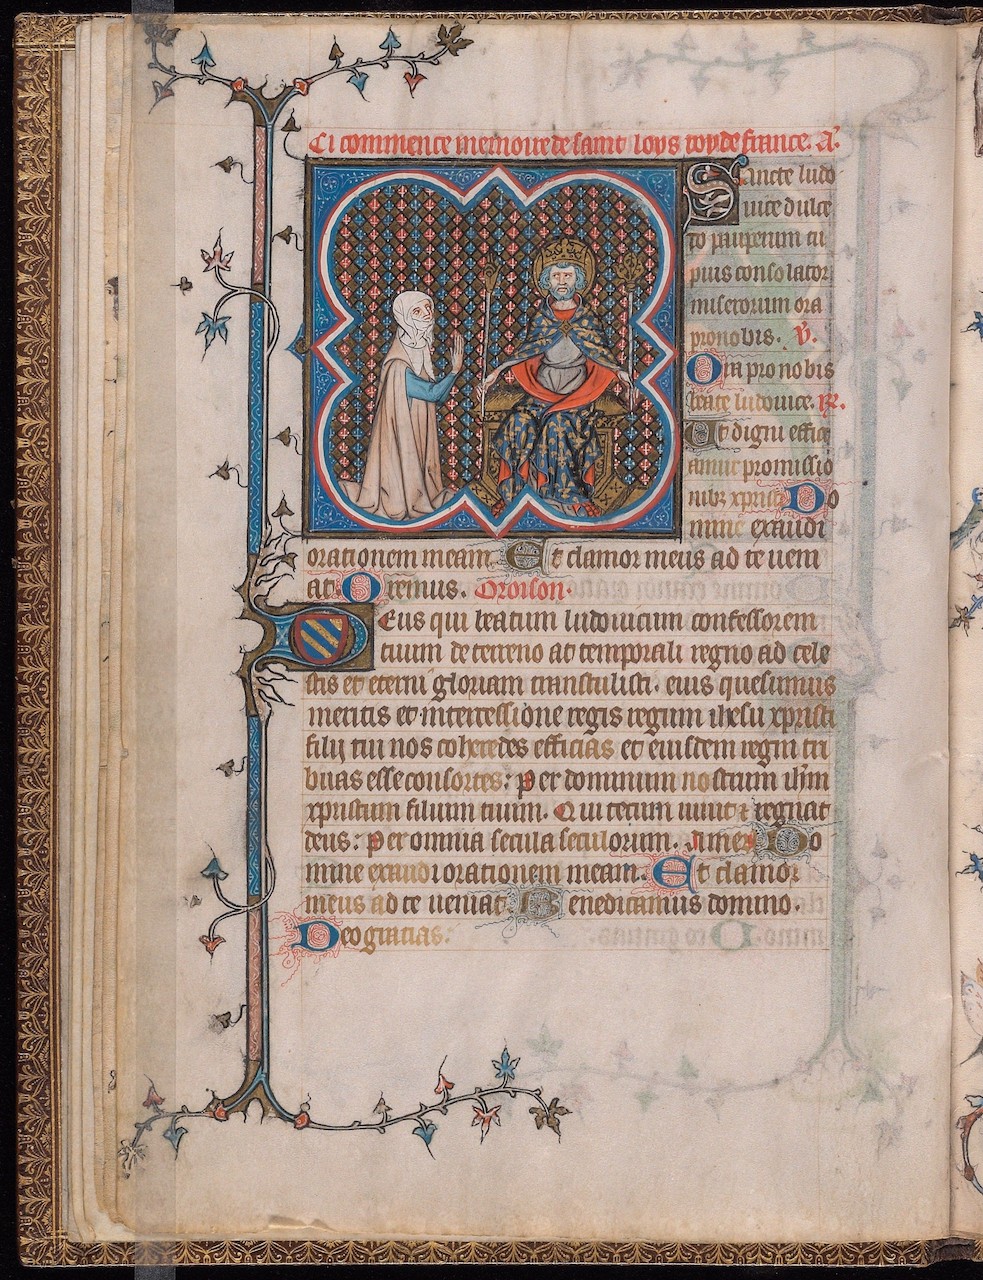 Ci commence memoire de saint loys roy de france. A.
Sancte ludo
uice dulce
to pauperum ci
pius consolator
miserorum ora
pro nobis. V.
Ora pro nobis
beate ludouice. R.
Et digni effici
amur promissio
nibz xpristi Do
mine exaudi
orationem meam Et clamor meus ad te ueni
at. Oremus. Oroison.
Deus qui beatum ludouicum confessorem
tuum de terreno ac temporali regno ad cele
stis et eterni gloriam transtulisti. eius quesumus
meritis et intercessione regis regum ihesu xpristi
filij tui nos coheredes efficias et eiusdem regni tri
buas esse consortes: Per dominum nostrum ihm
xpristum filium tuum. Qui tecum uiuit et regnat
deus: Per omnia secula seculorum. Amen Do
mine exaudi orationem meam. Et clamor
meus ad te ueniat. Benedicamus domino.
Deo gracias.